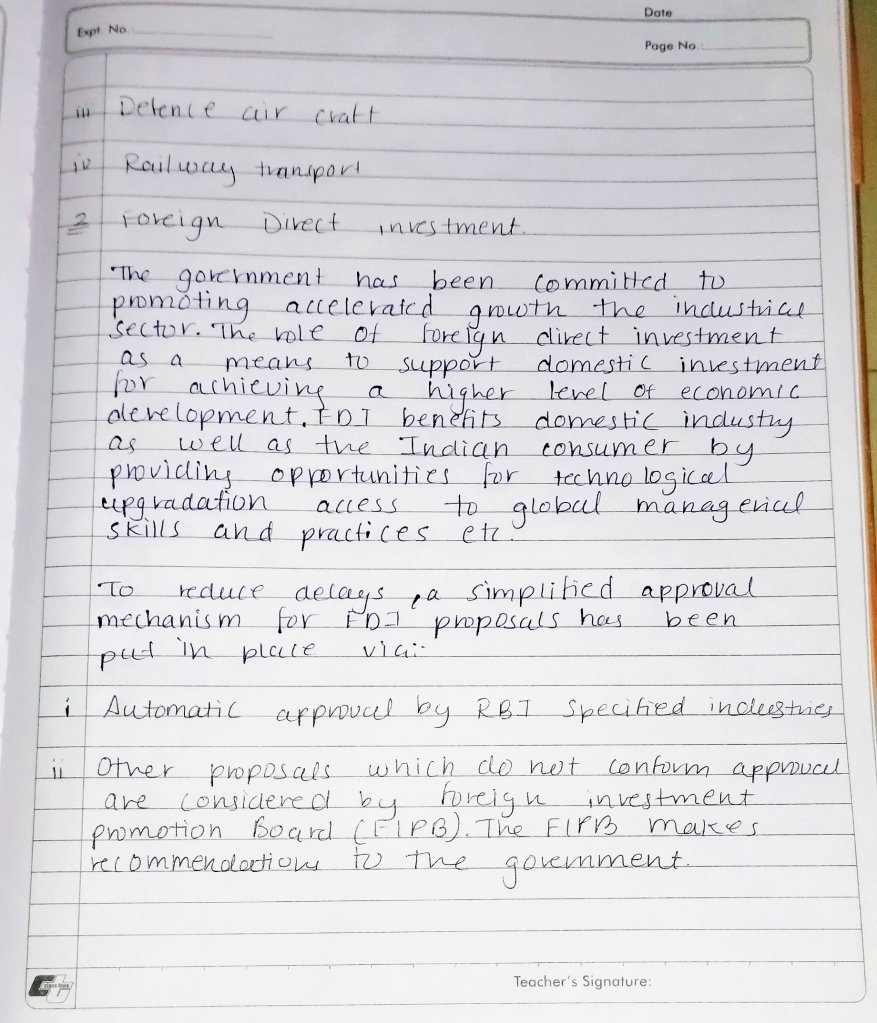 Date
Expt. No.
Page No.
iii Defence air craft
iv Railway transport
2 Foreign Direct investment.
The government has been committed to
promoting accelerated growth the industrial
sector. The role of foreign direct investment
as a means to support domestic investment
for achieving a higher level of economic
development. FDI benefits domestic industry
as well as the Indian consumer by
providing opportunities for technological
upgradation access to global managerial
skills and practices etc.
To reduce delays, a simplified approval
mechanism for FDI proposals has been
put in place via:-
i Automatic approval by RBI Specified industries
ii Other proposals which do not conform approval
are considered by foreign investment
promotion Board (FIPB). The FIPB makes
recommendations to the government.
Teacher's Signature: